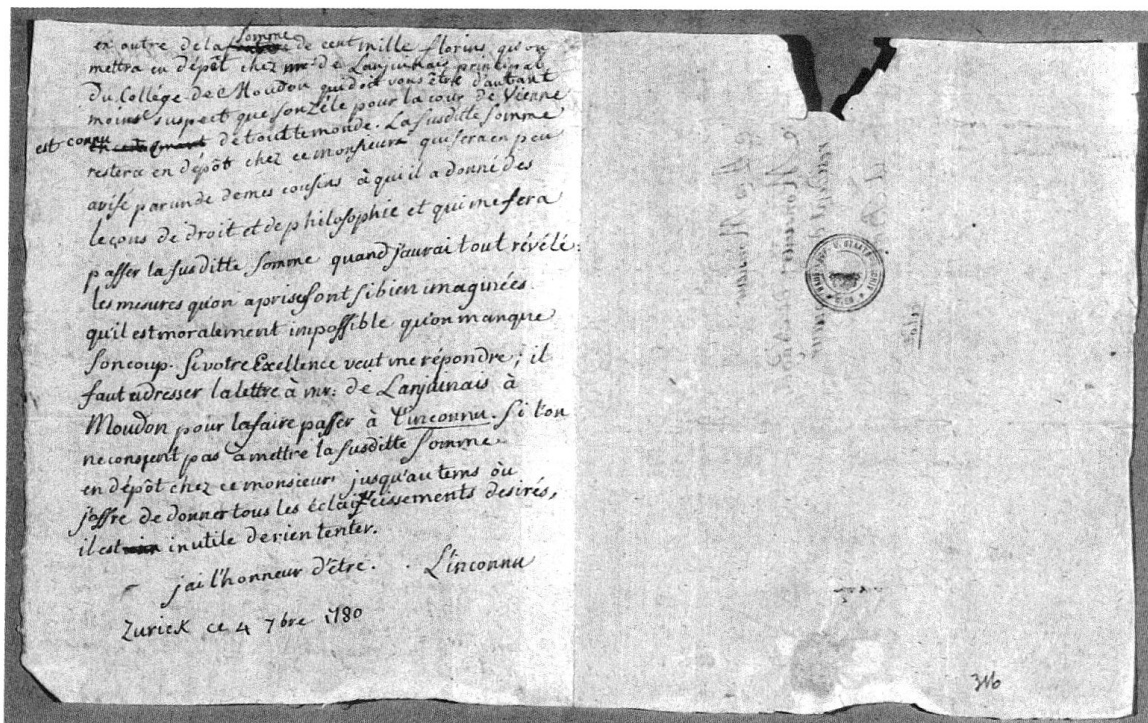 en outre de la somme de cent mille florins qu'on
mettra en dépôt chez mr de Lanjuinais principal
du Collége de Moudon qui doit vous être d'autant
moins suspect que son zéle pour la cour de Vienne
est connu de tout le monde. La susditte somme
restera en dépôt chez ce monsieur qui sera en peu
avisé par un de mes cousins à qui il a donné des
leçons de droit et de philosophie et qui me fera
passer la susditte somme quand j'aurai tout révélé:
les mesures qu'on a prises sont si bien imaginées
qu'il est moralement impossible qu'on manque
son coup. Si votre Excellence veut me répondre, il
faut adresser la lettre à mr: de Lanjuinais à
Moudon pour la faire passer à l'inconnu. Si l'on
ne consent pas a mettre la susditte somme
en dépôt chez ce monsieur jusqu'au tems où
j'offre de donner tous les éclaircissements desirés,
il est inutile de rien tenter.
j'ai l'honneur d'être. L'inconnu
Zurick ce 4 7bre 1780
316